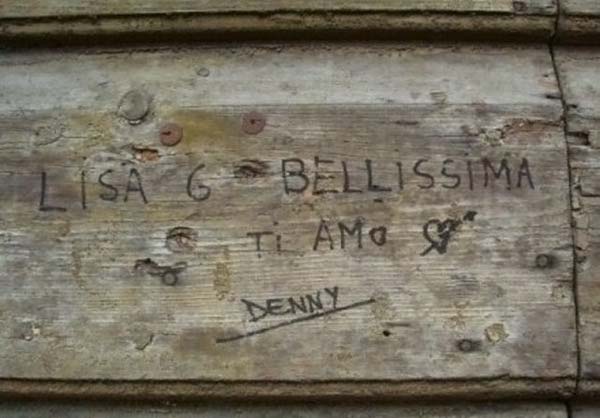 LISA G BELLISSIMA
Ti AMO
DENNY